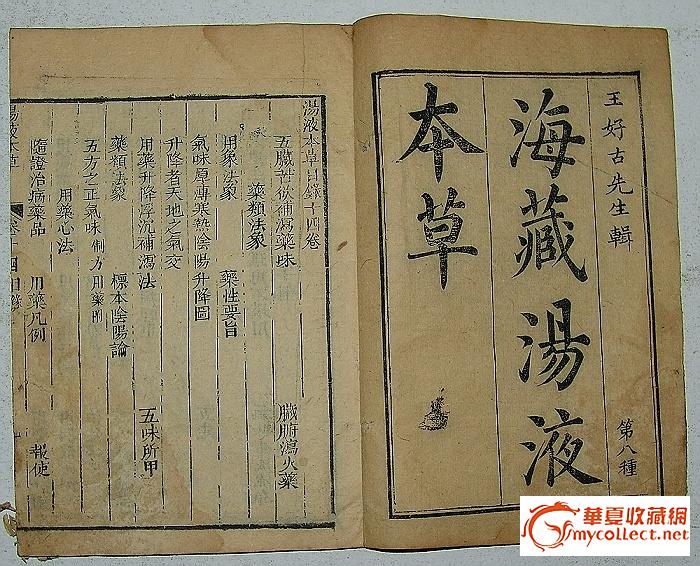 王好古先生輯
海藏湯液
本草
第八種
湯液本草目錄十四卷
五臟苦欲補瀉藥味 臟腑瀉火藥
藥類法象
用象法象 藥性要旨
氣味厚薄寒熱陰陽升降圖
升降者天地之氣交
用藥升降浮沉補瀉法 五味所
藥類法象 標本陰陽論
五方之正氣味 制方用藥附
用藥心法
隨證治病藥品 用藥凡例 報使
湯液本草 十四 目錄
華夏收藏網
mycollect.net